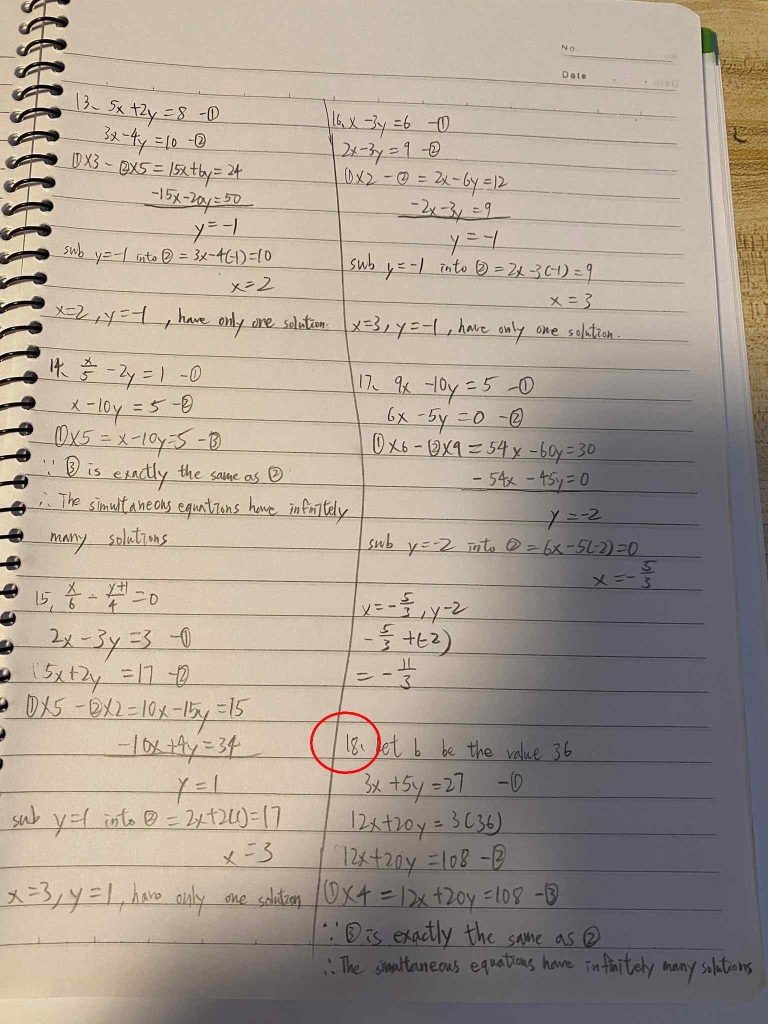 No.
Date
13、 5x+2y=8 -①
3x-4y=10 -②
①X3 - ②X5 = 15x+6y=24
-15x-20y=50
y=-1
sub y=-1 into ② = 3x-4(-1)=10
x=2
x=2, y=-1, have only one solution.
14、 x/5 - 2y = 1 -①
x-10y = 5 -②
①X5 = x-10y=5 -③
∵ ③ is exactly the same as ②
∴ The simultaneous equations have infinitely
many solutions
15、 x/6 - (y+1)/4 = 0
2x-3y=3 -①
5x+2y=17 -②
①X5 - ②X2 = 10x-15y=15
-10x+4y=34
y=1
sub y=1 into ② = 2x+2(1)=17
x=3
x=3, y=1, have only one solution
16、 x-3y=6 -①
2x-3y=9 -②
①X2 - ② = 2x-6y=12
-2x-3y=9
y=-1
sub y=-1 into ② = 2x-3(-1)=9
x=3
x=3, y=-1, have only one solution.
17、 9x-10y=5 -①
6x-5y=0 -②
①X6 - ②X9 = 54x-60y=30
-54x-45y=0
y=-2
sub y=-2 into ② = 6x-5(-2)=0
x=-5/3
x=-5/3, y-2
-5/3+(-2)
=-11/3
18、 Let b be the value 36
3x+5y=27 -①
12x+20y=3(36)
12x+20y=108 -②
①X4 = 12x+20y=108 -③
∵ ③ is exactly the same as ②
∴ The simultaneous equations have infinitely many solutions